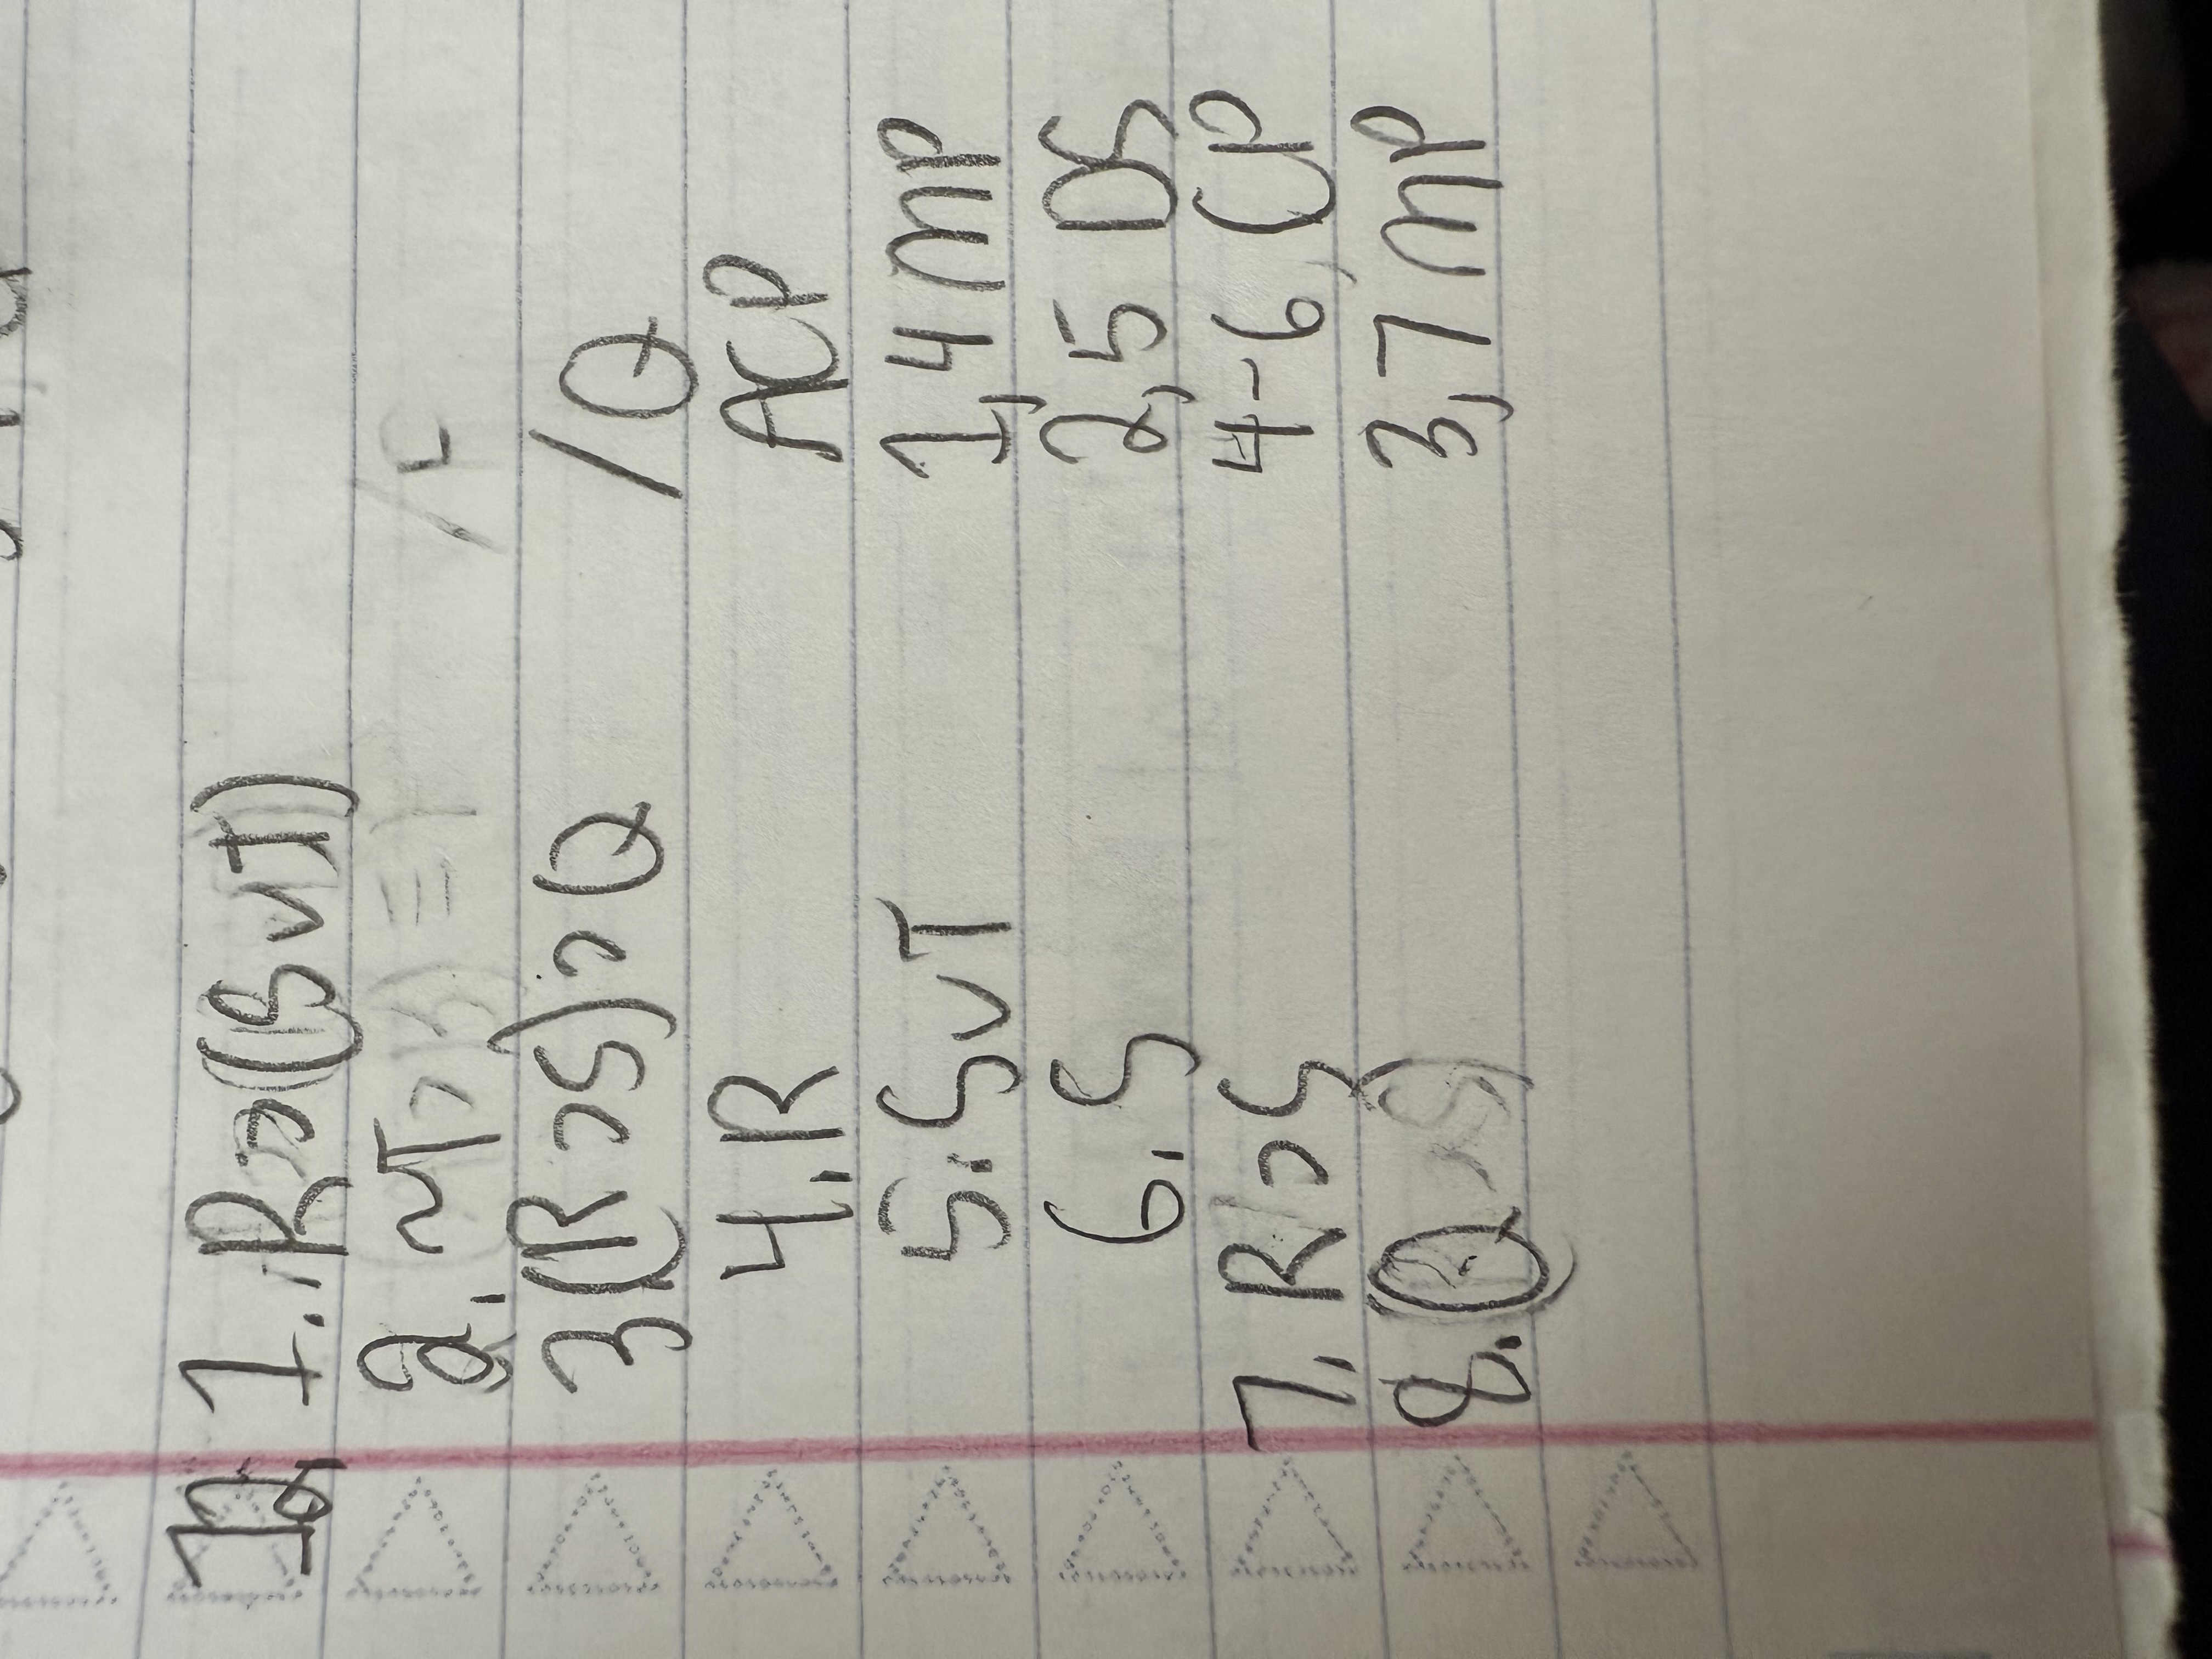 12. 1. R⊃(S∨T)
2. ~T
3 (R⊃S)⊃Q /Q
4. R ACP
5. S∨T 1,4 MP
6. S 2,5 DS
7. R⊃S 4-6, CP
8. Q 3,7 MP